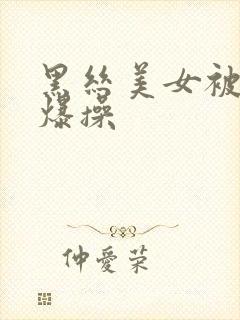 黑丝美女被
爆操
仲愛荣